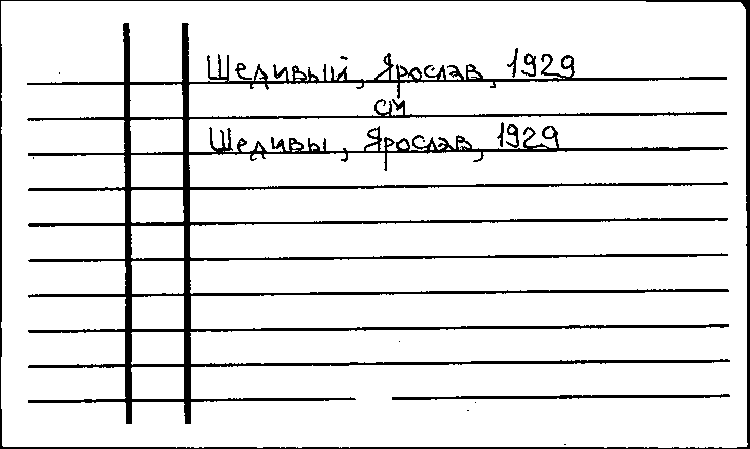 Шедивый, Ярослав, 1929
см
Шедивы, Ярослав, 1929